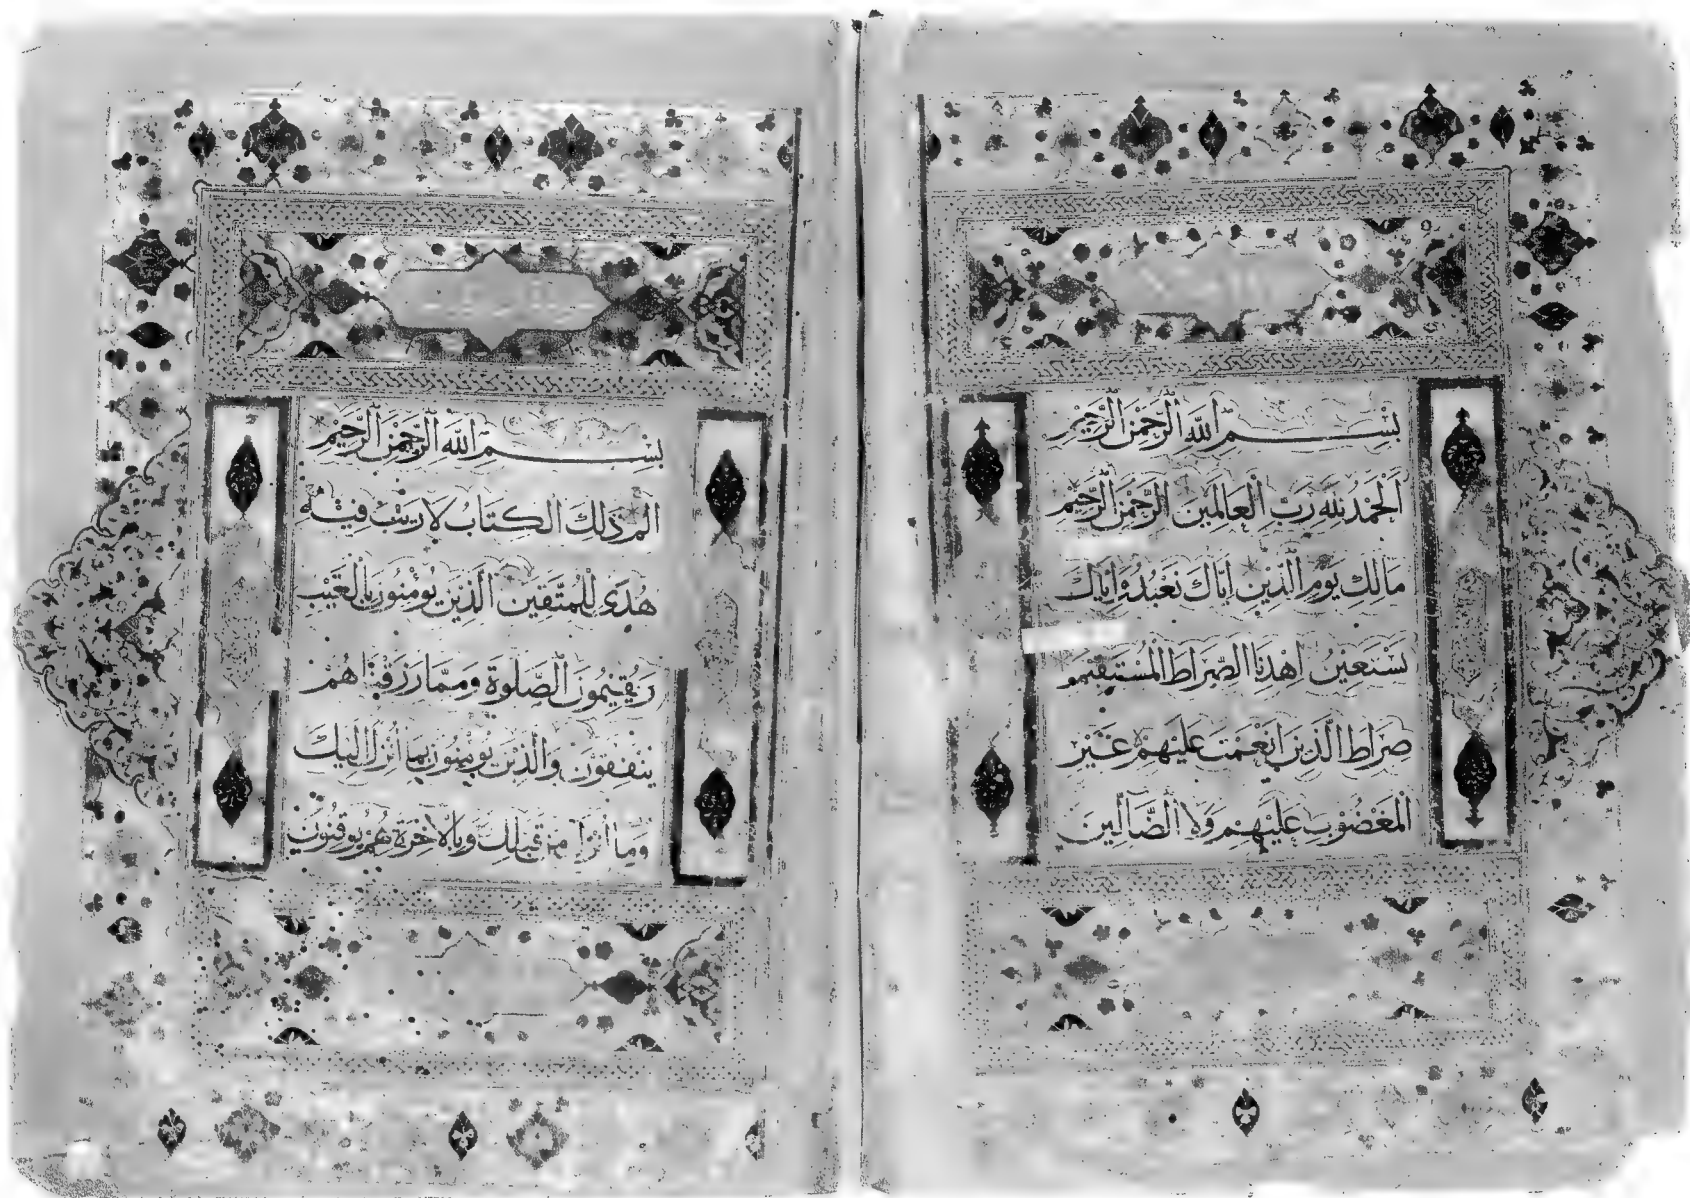 بِسْمِ ٱللَّهِ ٱلرَّحْمَٰنِ ٱلرَّحِيمِ
اَلْحَمْدُ لِلّٰهِ رَبِّ الْعَالَمِينَ الرَّحْمٰنِ الرَّحِيمِ
مَالِكِ يَوْمِ الدِّينِ اِيَّاكَ نَعْبُدُ وَاِيَّاكَ
نَسْتَعِينُ اِهْدِنَا الصِّرَاطَ الْمُسْتَقِيمَ
صِرَاطَ الَّذِينَ اَنْعَمْتَ عَلَيْهِمْ غَيْرِ
الْمَغْضُوبِ عَلَيْهِمْ وَلَا الضَّآلِّينَ
بِسْمِ ٱللَّهِ ٱلرَّحْمَٰنِ ٱلرَّحِيمِ
الم ذَلِكَ الْكِتَابُ لَا رَيْبَ فِيهِ
هُدًى لِلْمُتَّقِينَ الَّذِينَ يُؤْمِنُونَ بِالْغَيْبِ
وَيُقِيمُونَ الصَّلٰوةَ وَمِمَّا رَزَقْنَاهُمْ
يُنْفِقُونَ وَالَّذِينَ يُؤْمِنُونَ بِمَا اُنْزِلَ اِلَيْكَ
وَمَا اُنْزِلَ مِنْ قَبْلِكَ وَبِالْاٰخِرَةِ هُمْ يُوقِنُونَ